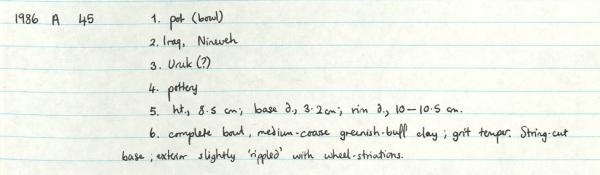 1986 A 45 1. pot (bowl)
2. Iraq, Nineveh
3. Uruk (?)
4. pottery
5. ht., 8.5 cm; base d., 3.2 cm; rim d., 10–10.5 cm.
6. complete bowl, medium-coarse greenish-buff clay; grit temper. String-cut
base; exterior slightly 'rippled' with wheel-striations.